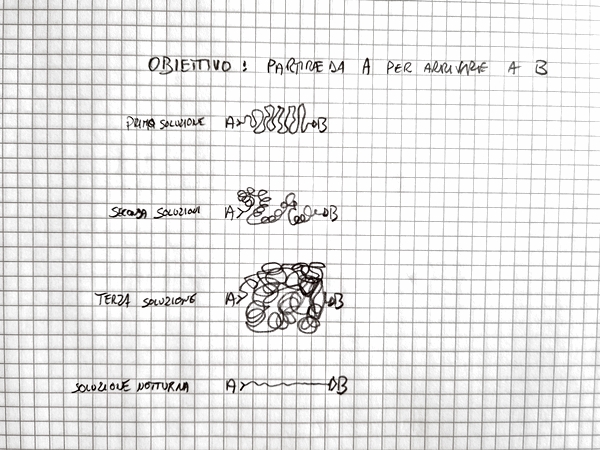 OBIETTIVO: PARTIRE DA A PER ARRIVARE A B
PRIMA SOLUZIONE A B
SECONDA SOLUZIONE A B
TERZA SOLUZIONE A B
SOLUZIONE NOTTURNA A B